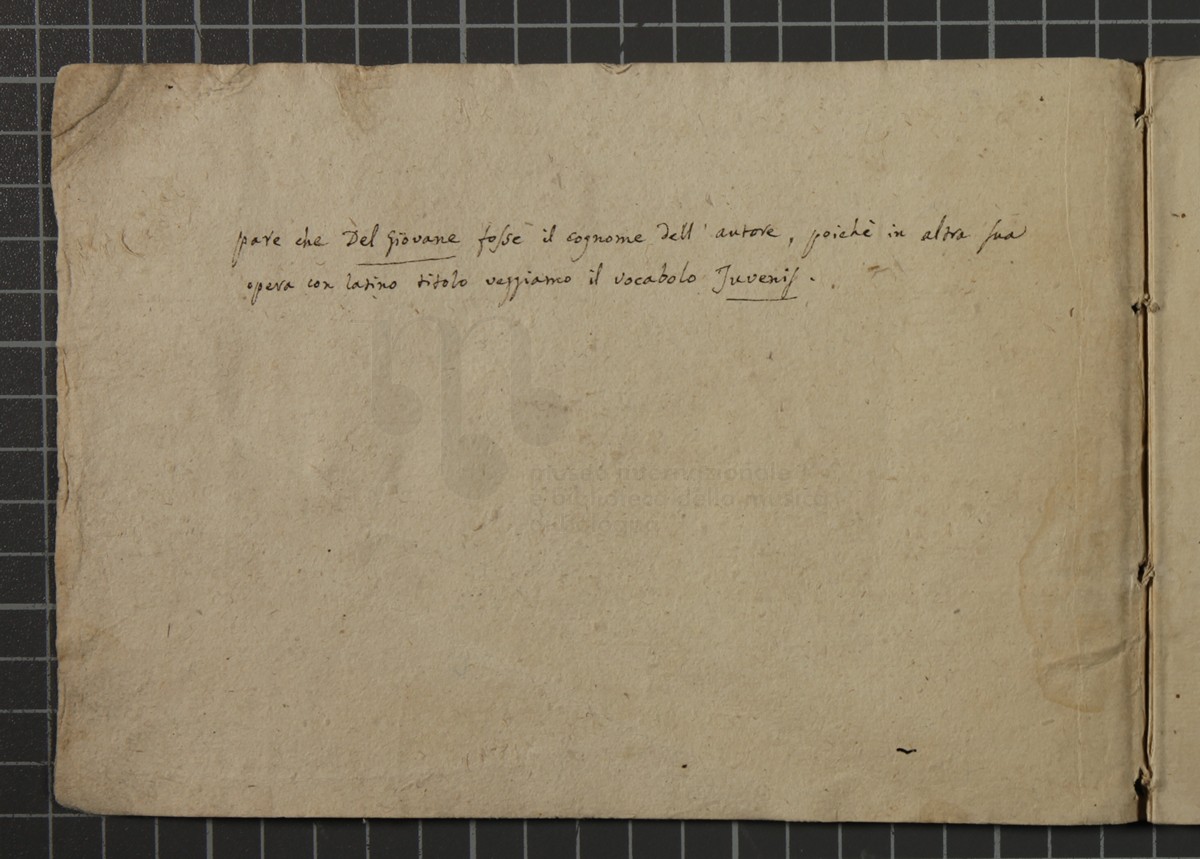 pare che Del Giovane fosse il cognome dell' autore, poichè in altra sua
opera con latino titolo veggiamo il vocabolo Juvenis.
museo internazionale
e biblioteca della musica
di bologna